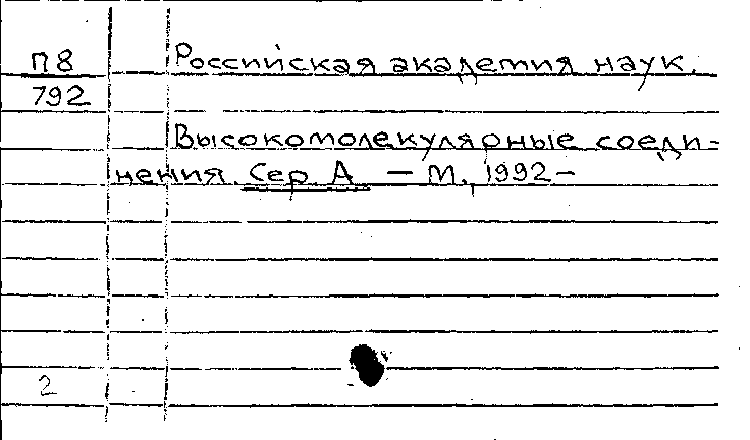 П8
792
Российская академия наук.
Высокомолекулярные соеди-
нения. Сер. А — М., 1992–
2